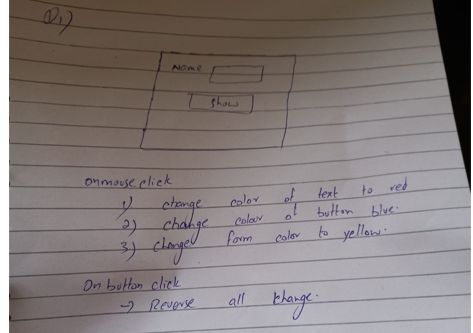 Q.1)
Name
Show
onmouse click
1) change color of text to red
2) change colour of button blue.
3) change form color to yellow.
On button click
→ Reverse all change.